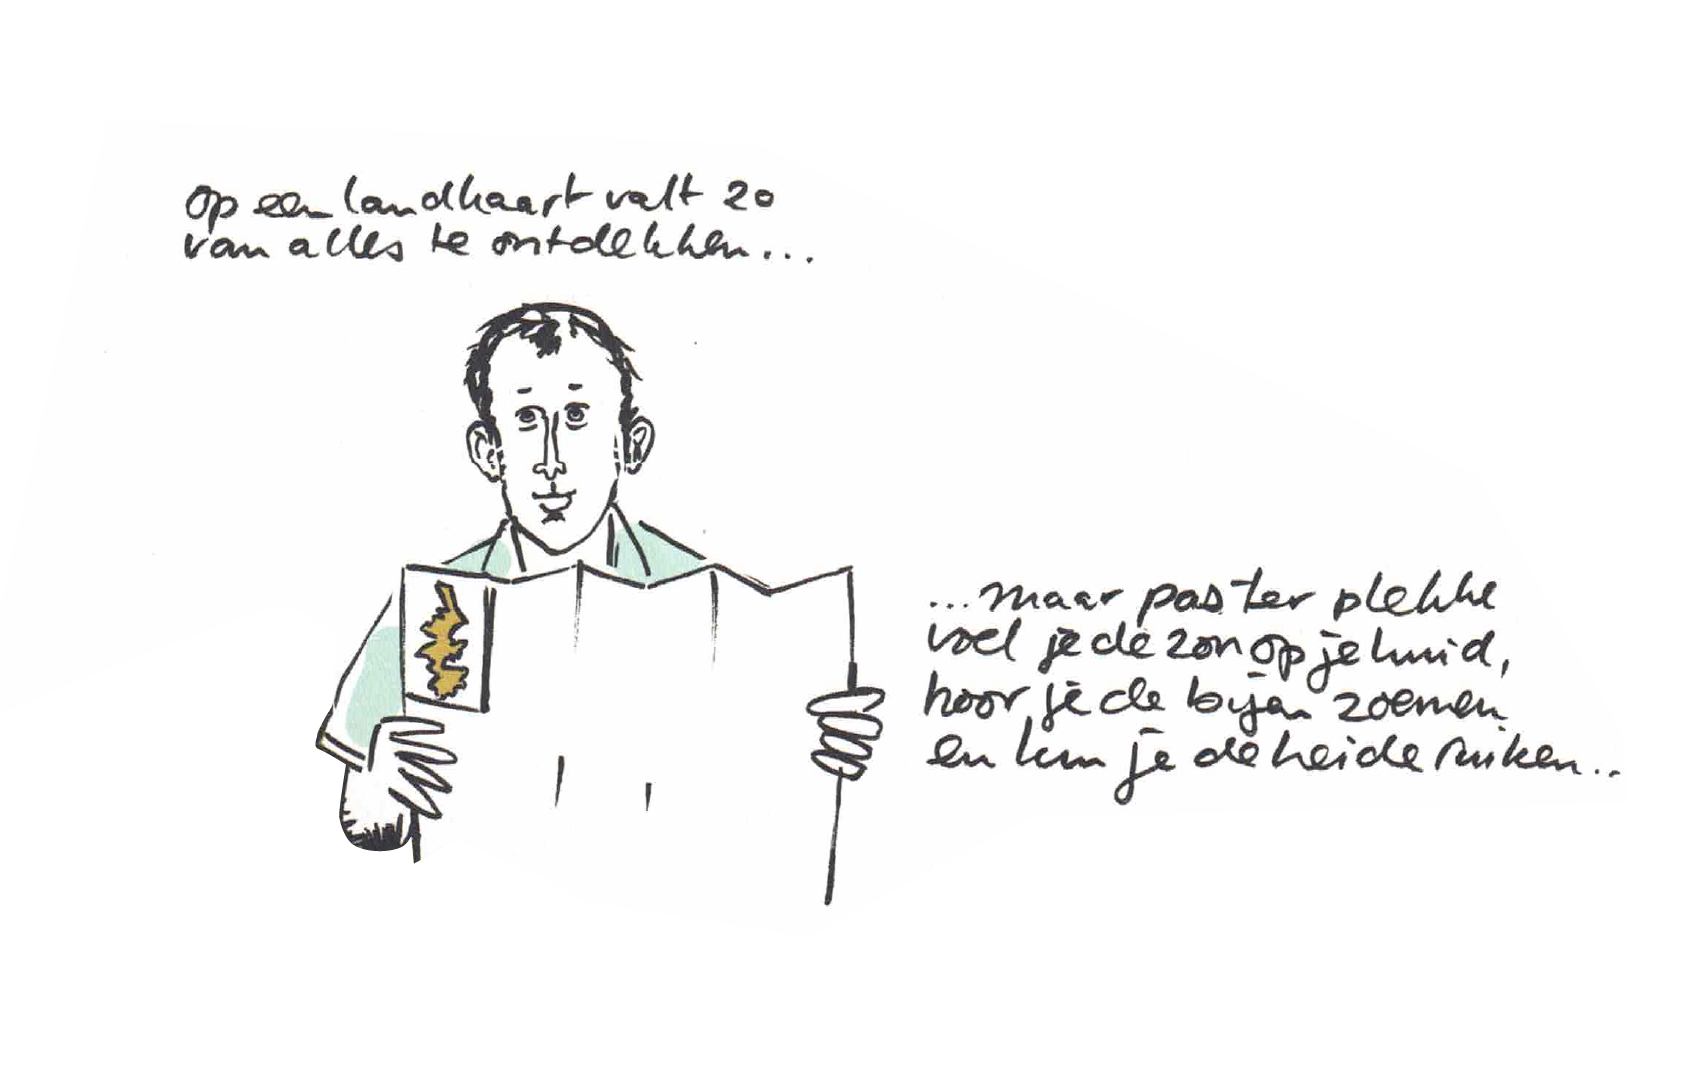 op een landkaart valt zo
van alles te ontdekken...
...maar pas ter plekke
voel je de zon op je huid,
hoor je de bijen zoemen
en kun je de heide ruiken..